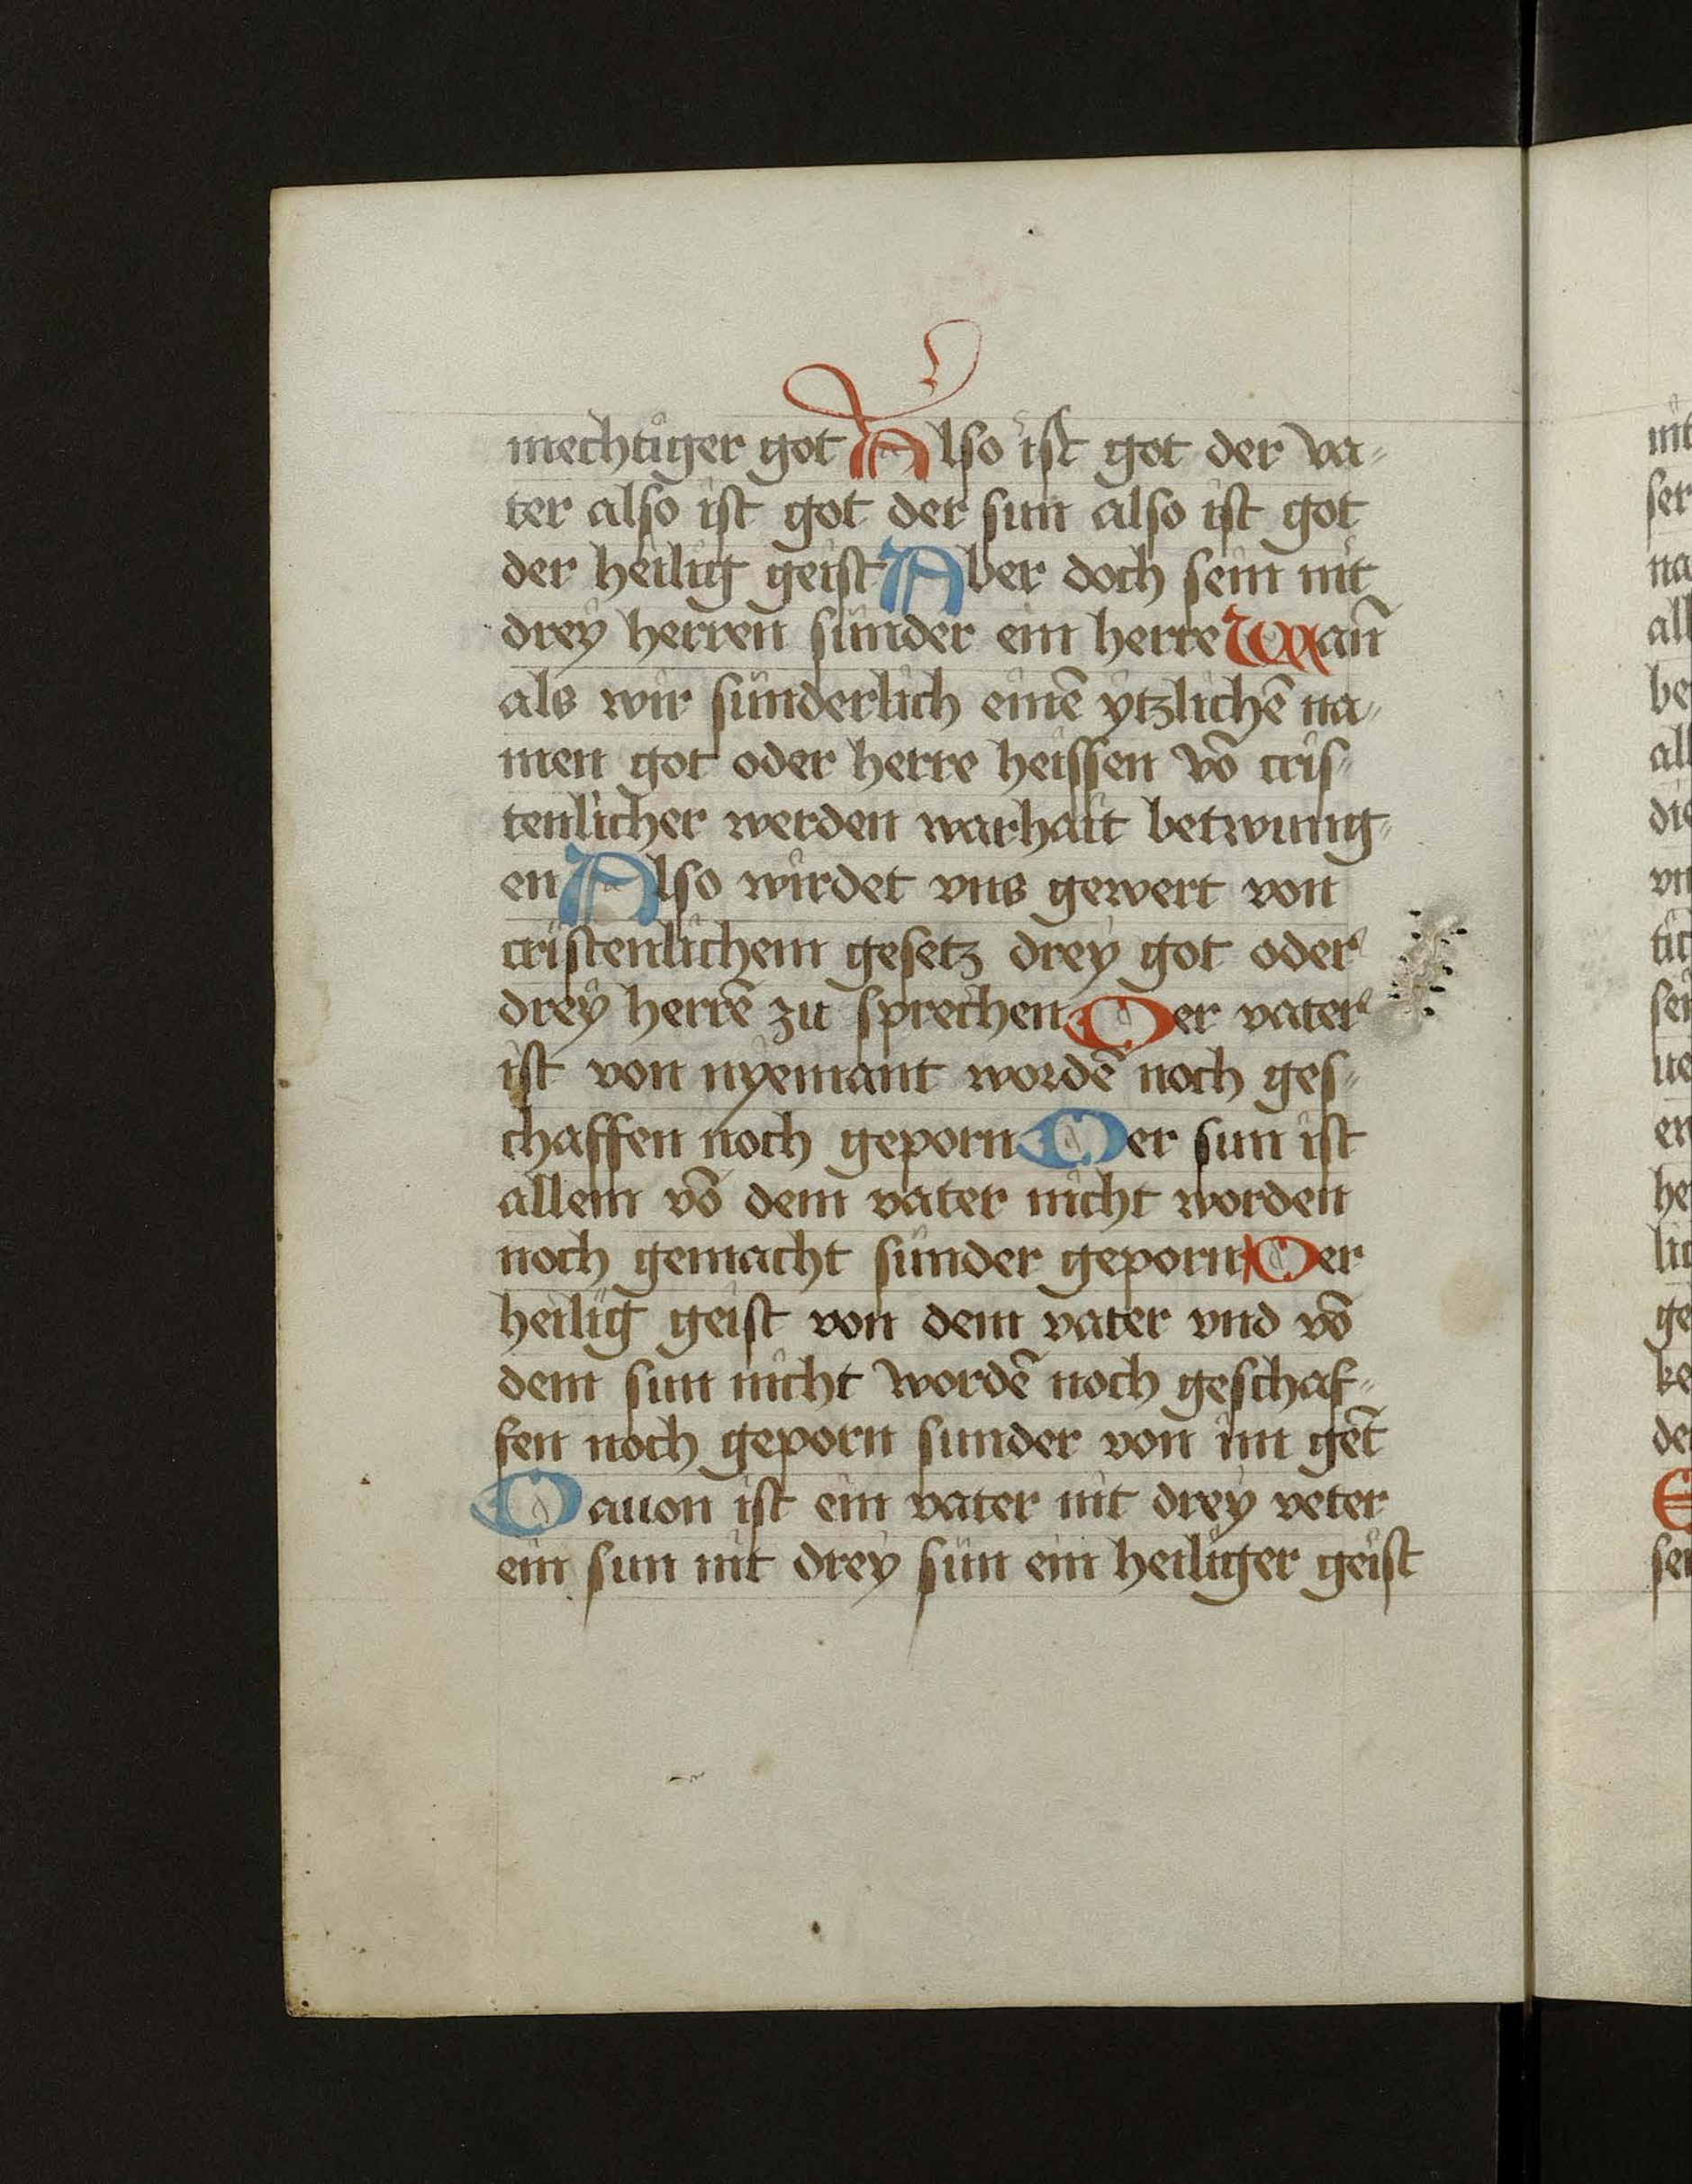 mechtiger got Also ist got der va⸗
ter also ist got der sun also ist got
der heilig geist Aber doch sein nit
drey herren sunder ein herre Wan̄
als wir sunderlich einē ytzlichē na⸗
men got oder herre heissen vō cris⸗
tenlicher werden warhait betwung⸗
en Also wirdet vns gewert von
cristenlichem gesetz drey got oder
drey herrē zu sprechen Der vater
ist von nyemant wordē noch ges⸗
chaffen noch geporn Der sun ist
allein vō dem vater nicht worden
noch gemacht sunder geporn Der
heilig geist von dem vater vnd vō
dem sun nicht wordē noch geschaf⸗
fen noch geporn sunder von im gēt
Dauon ist ein vater nit drey veter
ein sun nit drey sün ein heiliger geist